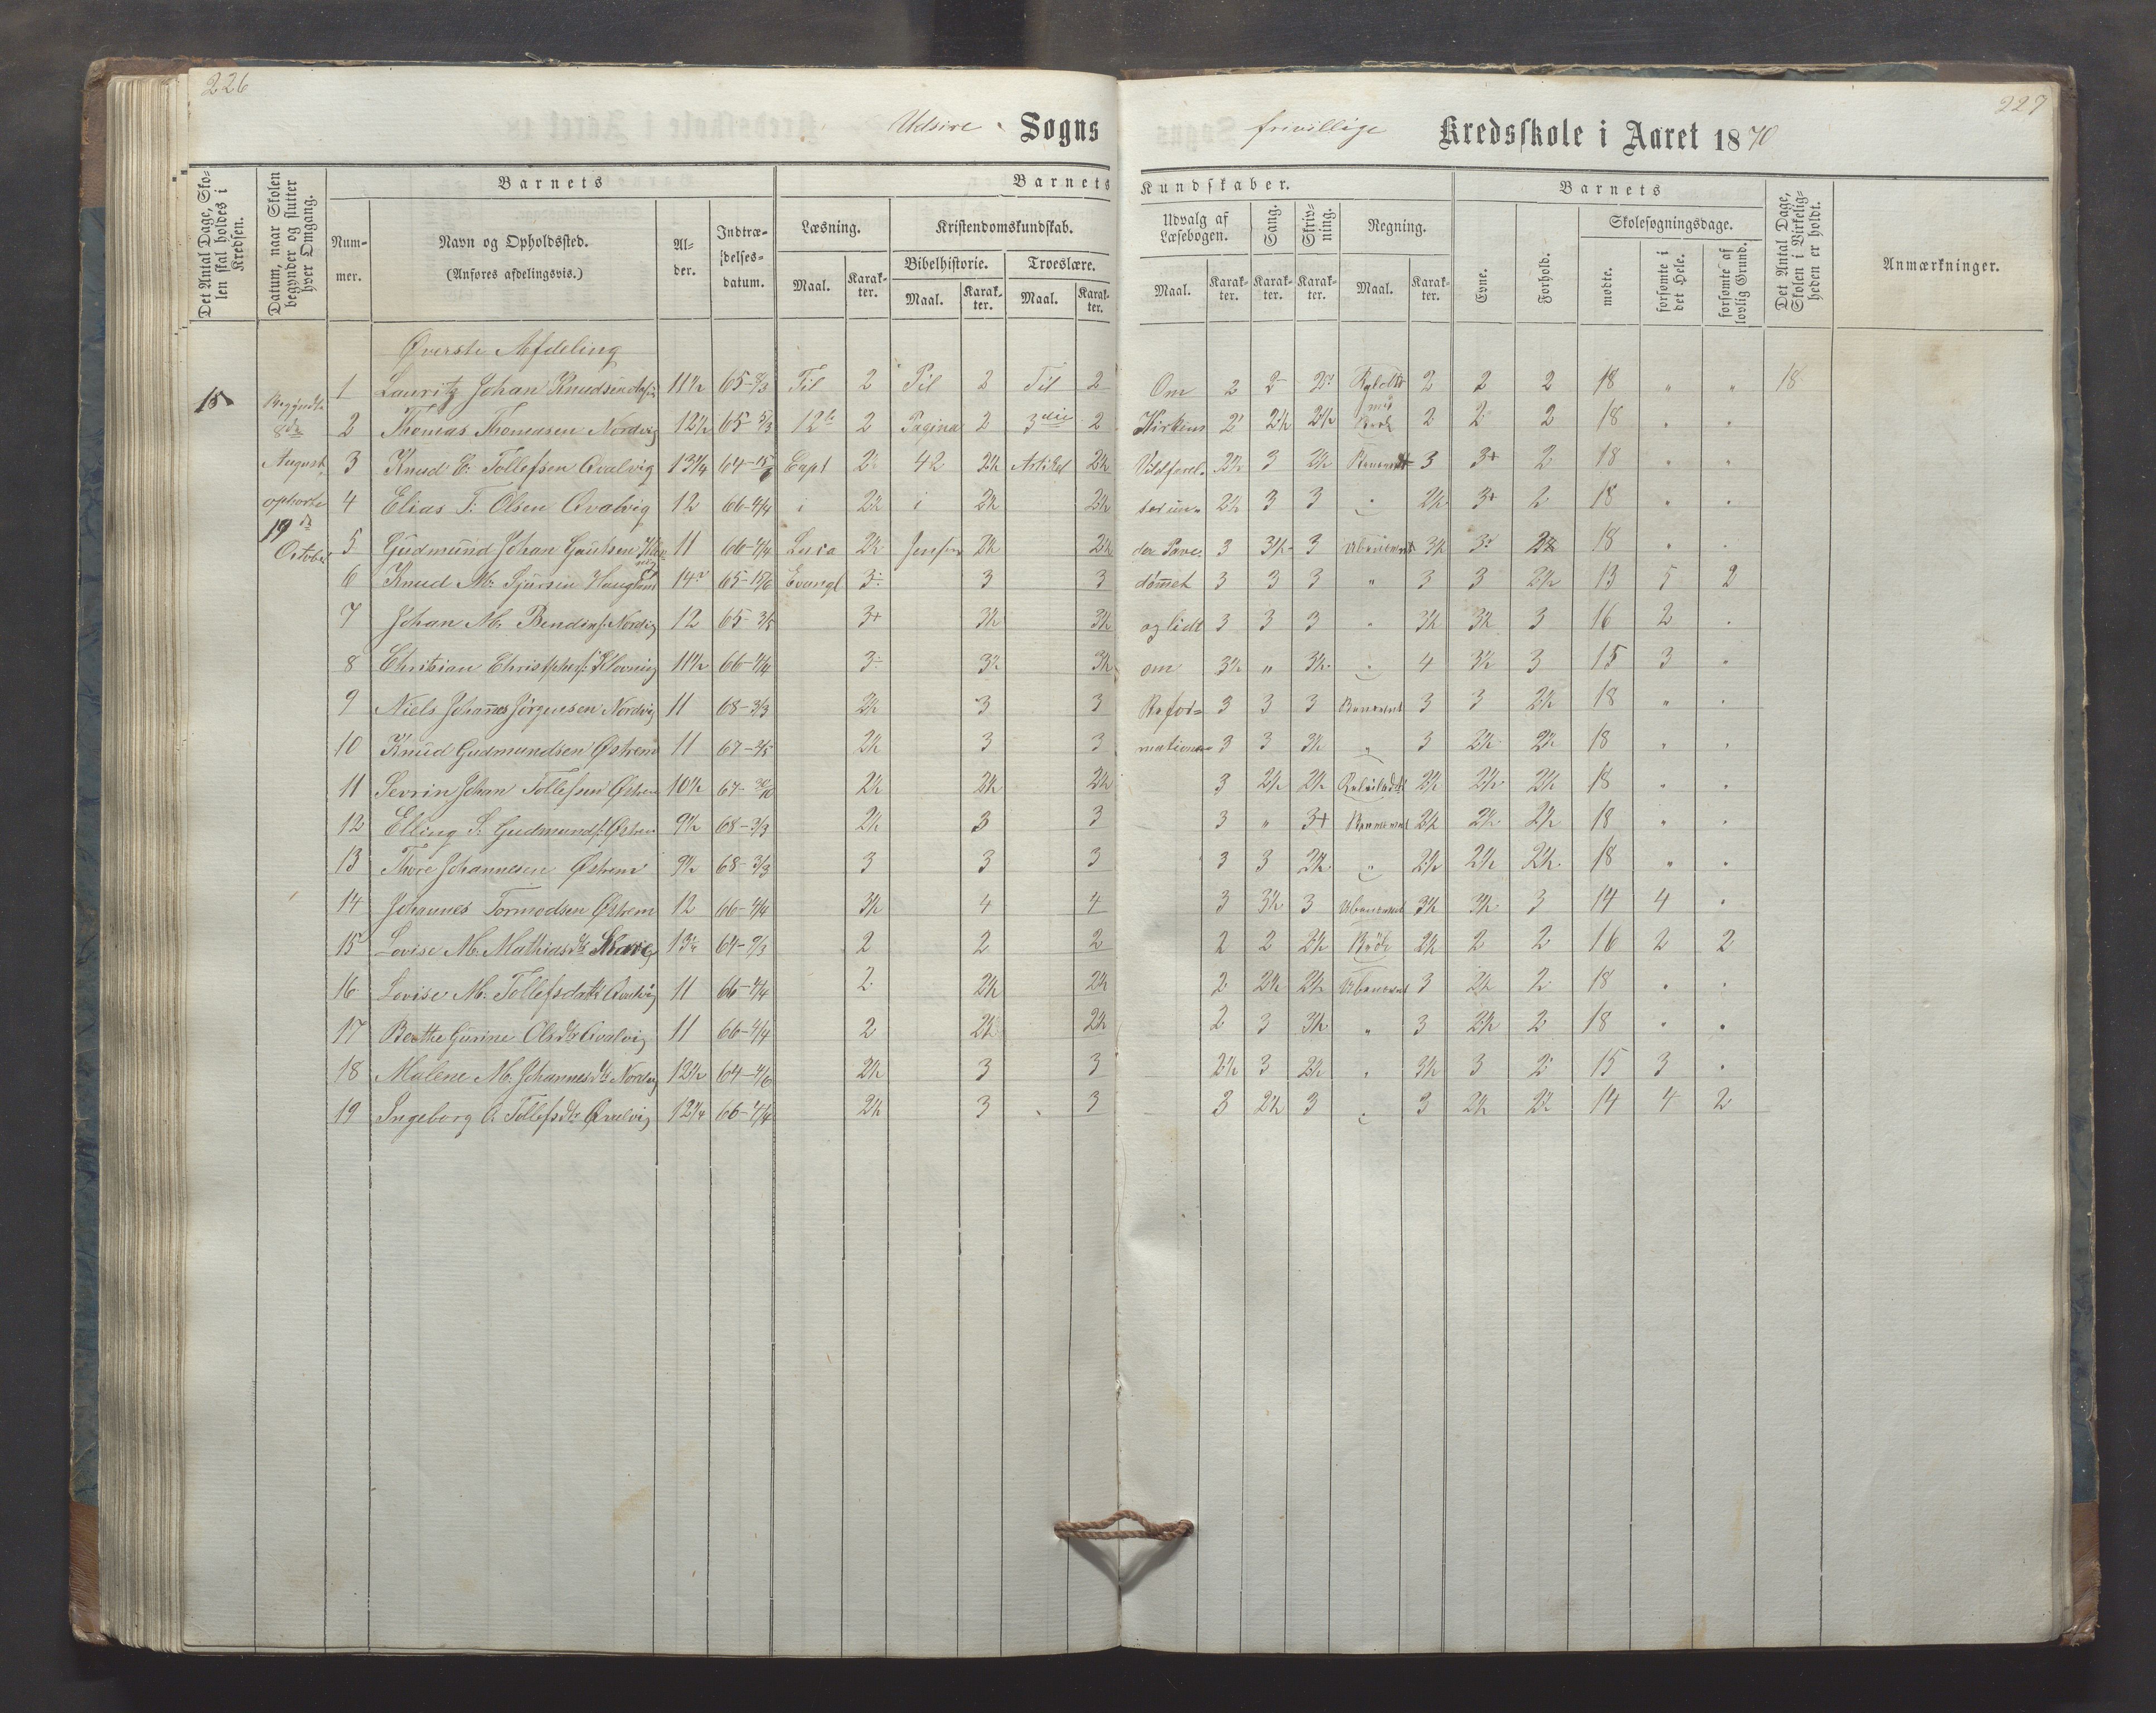 226
227
Udsire Sogns frivillige Kredsskole i Aaret 1870
Det Antal Dage, Sko-
len skal holdes i
Kredsen.
Datum, naar Skolen
begynder og slutter
hver Omgang.
Barnets
Num-
mer.
Navn og Opholdssted.
(Anføres afdelingsvis.)
Al-
der.
Indtræ-
delses-
datum.
Barnets Kundskaber.
Læsning.
Maal. Karak-
ter.
Kristendomskundskab.
Bibelhistorie.
Maal. Karak-
ter.
Troeslære.
Maal. Karak-
ter.
Udvalg af
Læsebogen.
Maal. Karak-
ter.
Sang.
Karak-
ter.
Skriv-
ning.
Karak-
ter.
Regning.
Maal. Karak-
ter.
Barnets
Evne.
Forhold.
Skolesøgningsdage.
mødte.
forsømte i
det Hele.
forsømte af
lovlig Grund.
Det Antal Dage,
Skolen i Virkelig-
heden er holdt.
Anmærkninger.
Øverste Afdeling
1 Lauritz Johan Knudsen 11½ 65- Til 2 Til 2 Til 2 Om 2 2 2 2 2 18 " " 18
Begyndte
8de
2 Thomas Thomasen Nordvig 12½ 65-5/3 12te 2 Pagina 2 3die 2 Kirkens 2 2½ 2½ Brøk 2 2 2 18 " "
August
3 Knud E. Tollefsen Qvalvig 13¼ 64- Capt 2 42 2½ Artikel 2½ 2½ 3 2½ 3 3+ 2 18 " "
ophørte
4 Elias T. Olsen Qvalvig 12 66-4/4 i 2½ i 2½ 2½ 2½ 3 3 " 2½ 3+ 2 18 " "
19de
October
5 Gudmund Johan 11 66-4/4 Luca 2½ Jensen 2½ 2½ der Pave- 3 3½ 3 Ubenævnt 3½ 18 " "
6 Knud M. Sjursen Haugland 14 65-15/6 Evangl 3 3 3 dømmet 3 3 3 " 3 3 2½ 13 5 2
7 Johan M. Nordvig 12 65- 3+ 3½ 3½ og lidt 3 3 3 " 3½ 3½ 3 16 2 "
8 Christian Klovning 11½ 66-4/4 3 3½ 3½ om 3½ " 3½ " 4 3½ 3 15 3 "
9 Niels Johannes Jörgensen Nordvig 11 68-3/3 2½ 3 3 Refor= 3 3 3 Benævnt 3 3 2½ 18 " "
10 Knud Gudmundsen Østrem 11 67- 2½ 3 3 mationen 3 3 3½ " 3 2½ 2½ 18 " "
11 Sevrin Johan Tollefsen Østrem 10½ 67- 2½ 2½ 2½ 3 2½ 2½ 2½ 2½ 2½ 18 " "
12 Elling S. Gudmunds: Østrem 9½ 68-3/3 2½ 3 3 3 " 3+ Benævnt 2½ 2½ 2½ 18 " "
13 Thore Johannesen Østrem 9½ 68-3/3 3 3 3 3 3 2½ " 2½ 2½ 2½ 18 " "
14 Johannes Tormodsen Østrem 12 66-4/4 3½ 4 4 3 3½ 3 Ubenævnt 3½ 3½ 3 14 4 "
15 Lovise M. Mathiasdtr 13¼ 64- 2 2 2 2 2 2½ Brøk 2½ 2 2 16 2 2
16 Lovise M. Tollefsdatter Qvalvig 11 66-4/4 2 2½ 2½ 2 2½ 2½ Ubenævnt 3 2½ 2 18 " "
17 Berthe Gurine Olsdtr Qvalvig 11 66-4/4 2 2½ 2½ 2 3 3½ " 3 2½ 2 18 " "
18 Malene M. Johannesdtr Nordvig 12½ 64-4/6 2½ 3 3 2½ 3 2½ " 3½ 3 2 15 3 "
19 Ingeborg O. Tollefsdtr Qvalvig 12¼ 66-4/4 2½ 3 3 3 2½ 3 " 3 2½ 2½ 14 4 2